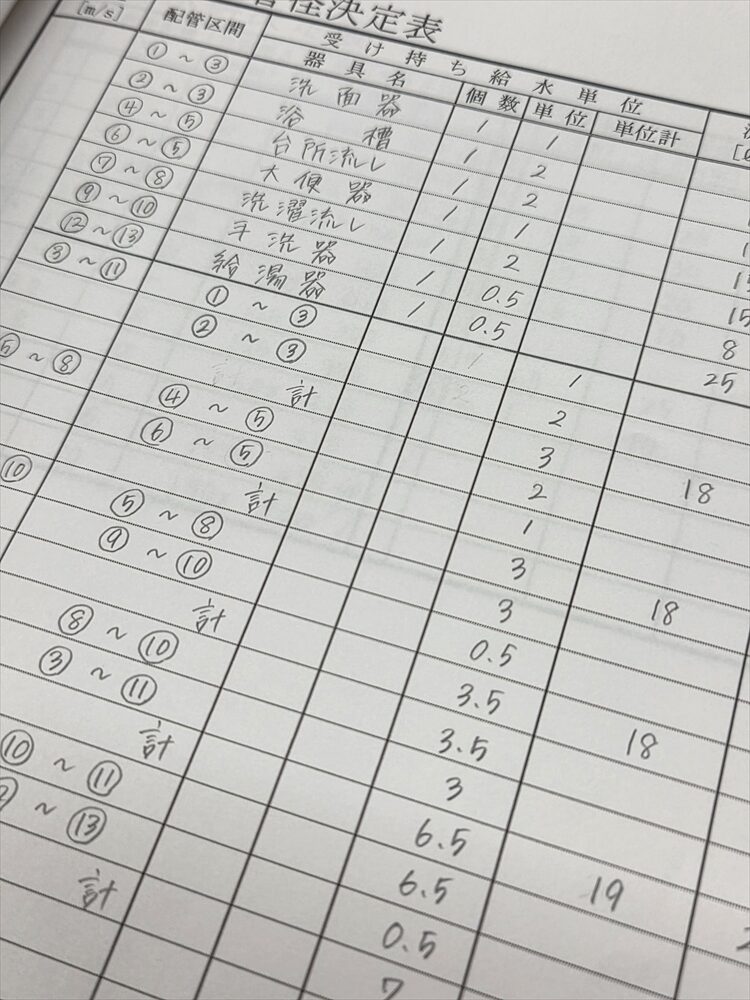 径決定表
[m/s] 配管区間 受け持ち給水単位
器具名 個数 単位 単位計
①～③ 洗面器 1 1
②～③ 浴槽 1 2
④～⑤ 台所流し 1 2
⑥～⑤ 大便器 1 1
⑦～⑧ 洗濯流し 1 2 15
⑨～⑩ 手洗器 1 0.5 8
⑫～⑬ 給湯器 1 0.5 25
③～⑪ ①～③ 1
②～③ 2
計 3 18
⑤～⑧ ④～⑤ 2
⑥～⑤ 1
計 3 18
⑩ ⑤～⑧ 3
⑨～⑩ 0.5
計 3.5 18
⑧～⑩ 3.5
③～⑪ 3
計 6.5 19
⑩～⑪ 6.5
～⑬ 0.5
計 7